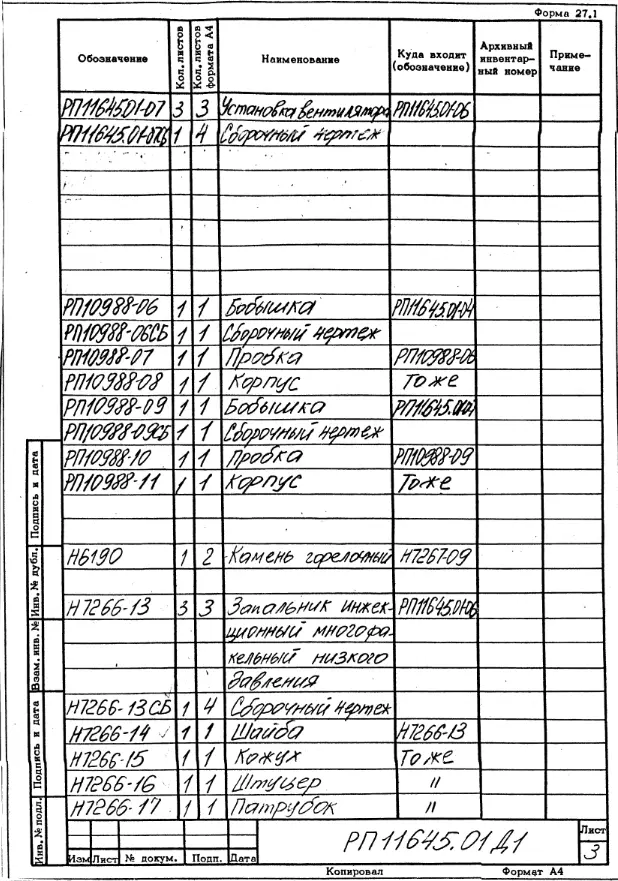 Форма 27.1
Обозначение Кол. листов Кол. листов формата А4 Наименование Куда входит (обозначение) Архивный инвентарный номер Приме-чание
РП11645.01-07 3 3 Установка вентилятора РП11645.01-06
РП11645.01-07СБ 1 4 Сборочный чертеж
РП10988-06 1 1 Бобышка РП11645.01-04
РП10988-06СБ 1 1 Сборочный чертеж
РП10988-07 1 1 Пробка РП10988-06
РП10988-08 1 1 Корпус То же
РП10988-09 1 1 Бобышка РП11645.01-04
РП10988-09СБ 1 1 Сборочный чертеж
РП10988-10 1 1 Пробка РП10988-09
РП10988-11 1 1 Корпус То же
Н6190 1 2 Камень горелочный Н7267-09
Н7266-13 3 3 Запальник инжек- РП11645.01-06
ционный многофа-
кельный низкого
давления
Н7266-13СБ 1 4 Сборочный чертеж
Н7266-14 1 1 Шайба Н7266-13
Н7266-15 1 1 Кожух То же
Н7266-16 1 1 Штуцер "
Н7266-17 1 1 Патрубок "
Инв. № подл. Подпись и дата Взам. инв. № Инв. № дубл. Подпись и дата
РП11645.01 Д1
Лист
3
Изм Лист № докум. Подп. Дата
Копировал Формат А4